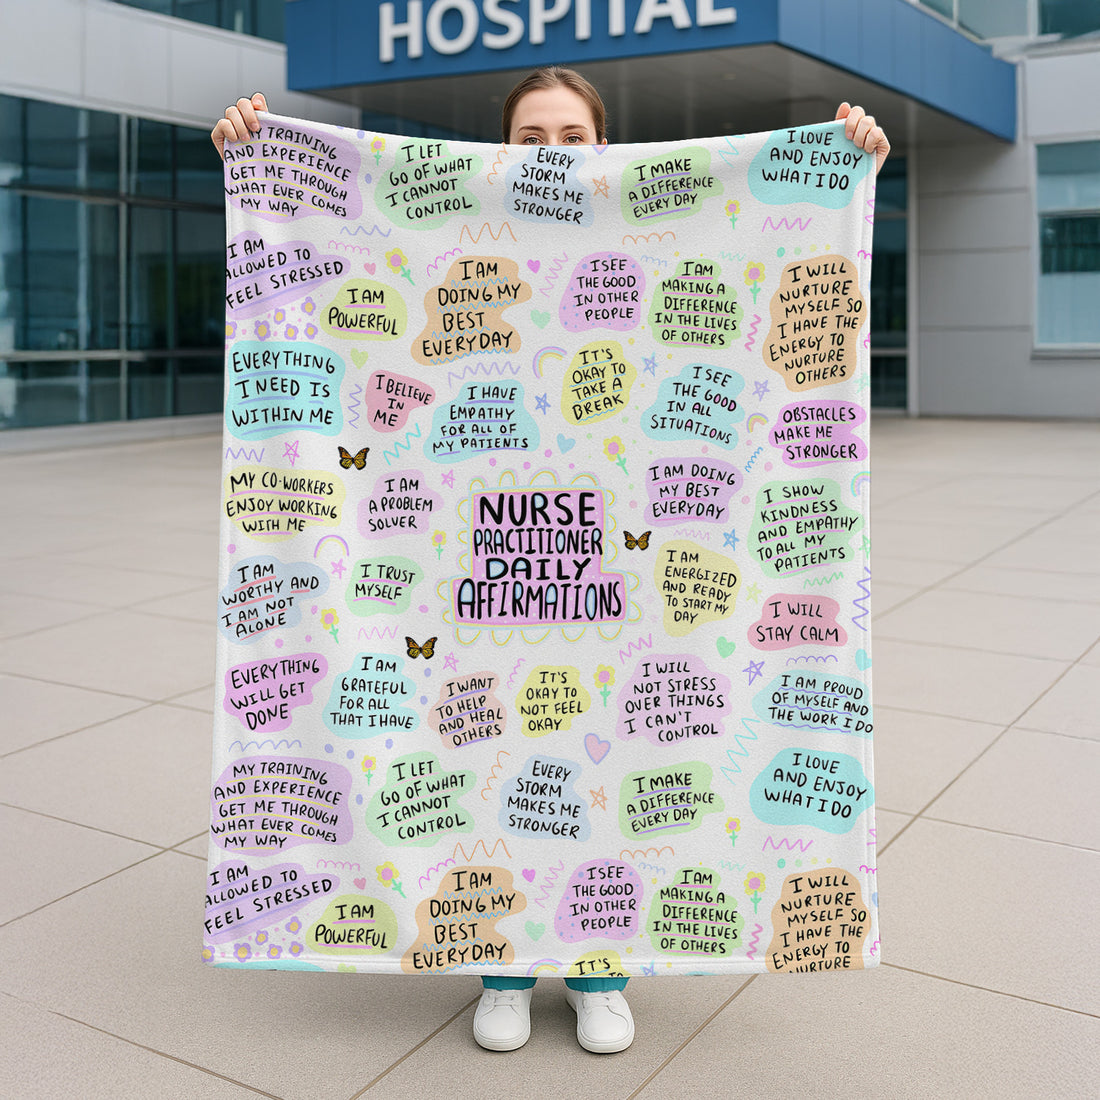 HOSPITAL
MY TRAINING
AND EXPERIENCE
GET ME THROUGH
WHAT EVER COMES
MY WAY
I LET
GO OF WHAT
I CANNOT
CONTROL
EVERY
STORM
MAKES ME
STRONGER
I MAKE
A DIFFERENCE
EVERY DAY
I LOVE
AND ENJOY
WHAT I DO
I AM
ALLOWED TO
FEEL STRESSED
I AM
POWERFUL
I AM
DOING MY
BEST
EVERYDAY
I SEE
THE GOOD
IN OTHER
PEOPLE
I AM
MAKING A
DIFFERENCE
IN THE LIVES
OF OTHERS
I WILL
NURTURE
MYSELF SO
I HAVE THE
ENERGY TO
NURTURE
OTHERS
EVERYTHING
I NEED IS
WITHIN ME
I BELIEVE
IN
ME
I HAVE
EMPATHY
FOR ALL OF
MY PATIENTS
IT'S
OKAY TO
TAKE A
BREAK
I SEE
THE GOOD
IN ALL
SITUATIONS
OBSTACLES
MAKE ME
STRONGER
MY CO-WORKERS
ENJOY WORKING
WITH ME
I AM
A PROBLEM
SOLVER
NURSE
PRACTITIONER
DAILY
AFFIRMATIONS
I AM DOING
MY BEST
EVERYDAY
I SHOW
KINDNESS
AND EMPATHY
TO ALL MY
PATIENTS
I AM
WORTHY AND
I AM NOT
ALONE
I TRUST
MYSELF
I AM
ENERGIZED
AND READY
TO START MY
DAY
I WILL
STAY CALM
EVERYTHING
WILL GET
DONE
I AM
GRATEFUL
FOR ALL
THAT I HAVE
I WANT
TO HELP
AND HEAL
OTHERS
IT'S
OKAY TO
NOT FEEL
OKAY
I WILL
NOT STRESS
OVER THINGS
I CAN'T
CONTROL
I AM PROUD
OF MYSELF AND
THE WORK I DO
MY TRAINING
AND EXPERIENCE
GET ME THROUGH
WHAT EVER COMES
MY WAY
I LET
GO OF WHAT
I CANNOT
CONTROL
EVERY
STORM
MAKES ME
STRONGER
I MAKE
A DIFFERENCE
EVERY DAY
I LOVE
AND ENJOY
WHAT I DO
I AM
ALLOWED TO
FEEL STRESSED
I AM
POWERFUL
I AM
DOING MY
BEST
EVERYDAY
I SEE
THE GOOD
IN OTHER
PEOPLE
I AM
MAKING A
DIFFERENCE
IN THE LIVES
OF OTHERS
I WILL
NURTURE
MYSELF SO
I HAVE THE
ENERGY TO
NURTURE
IT'S